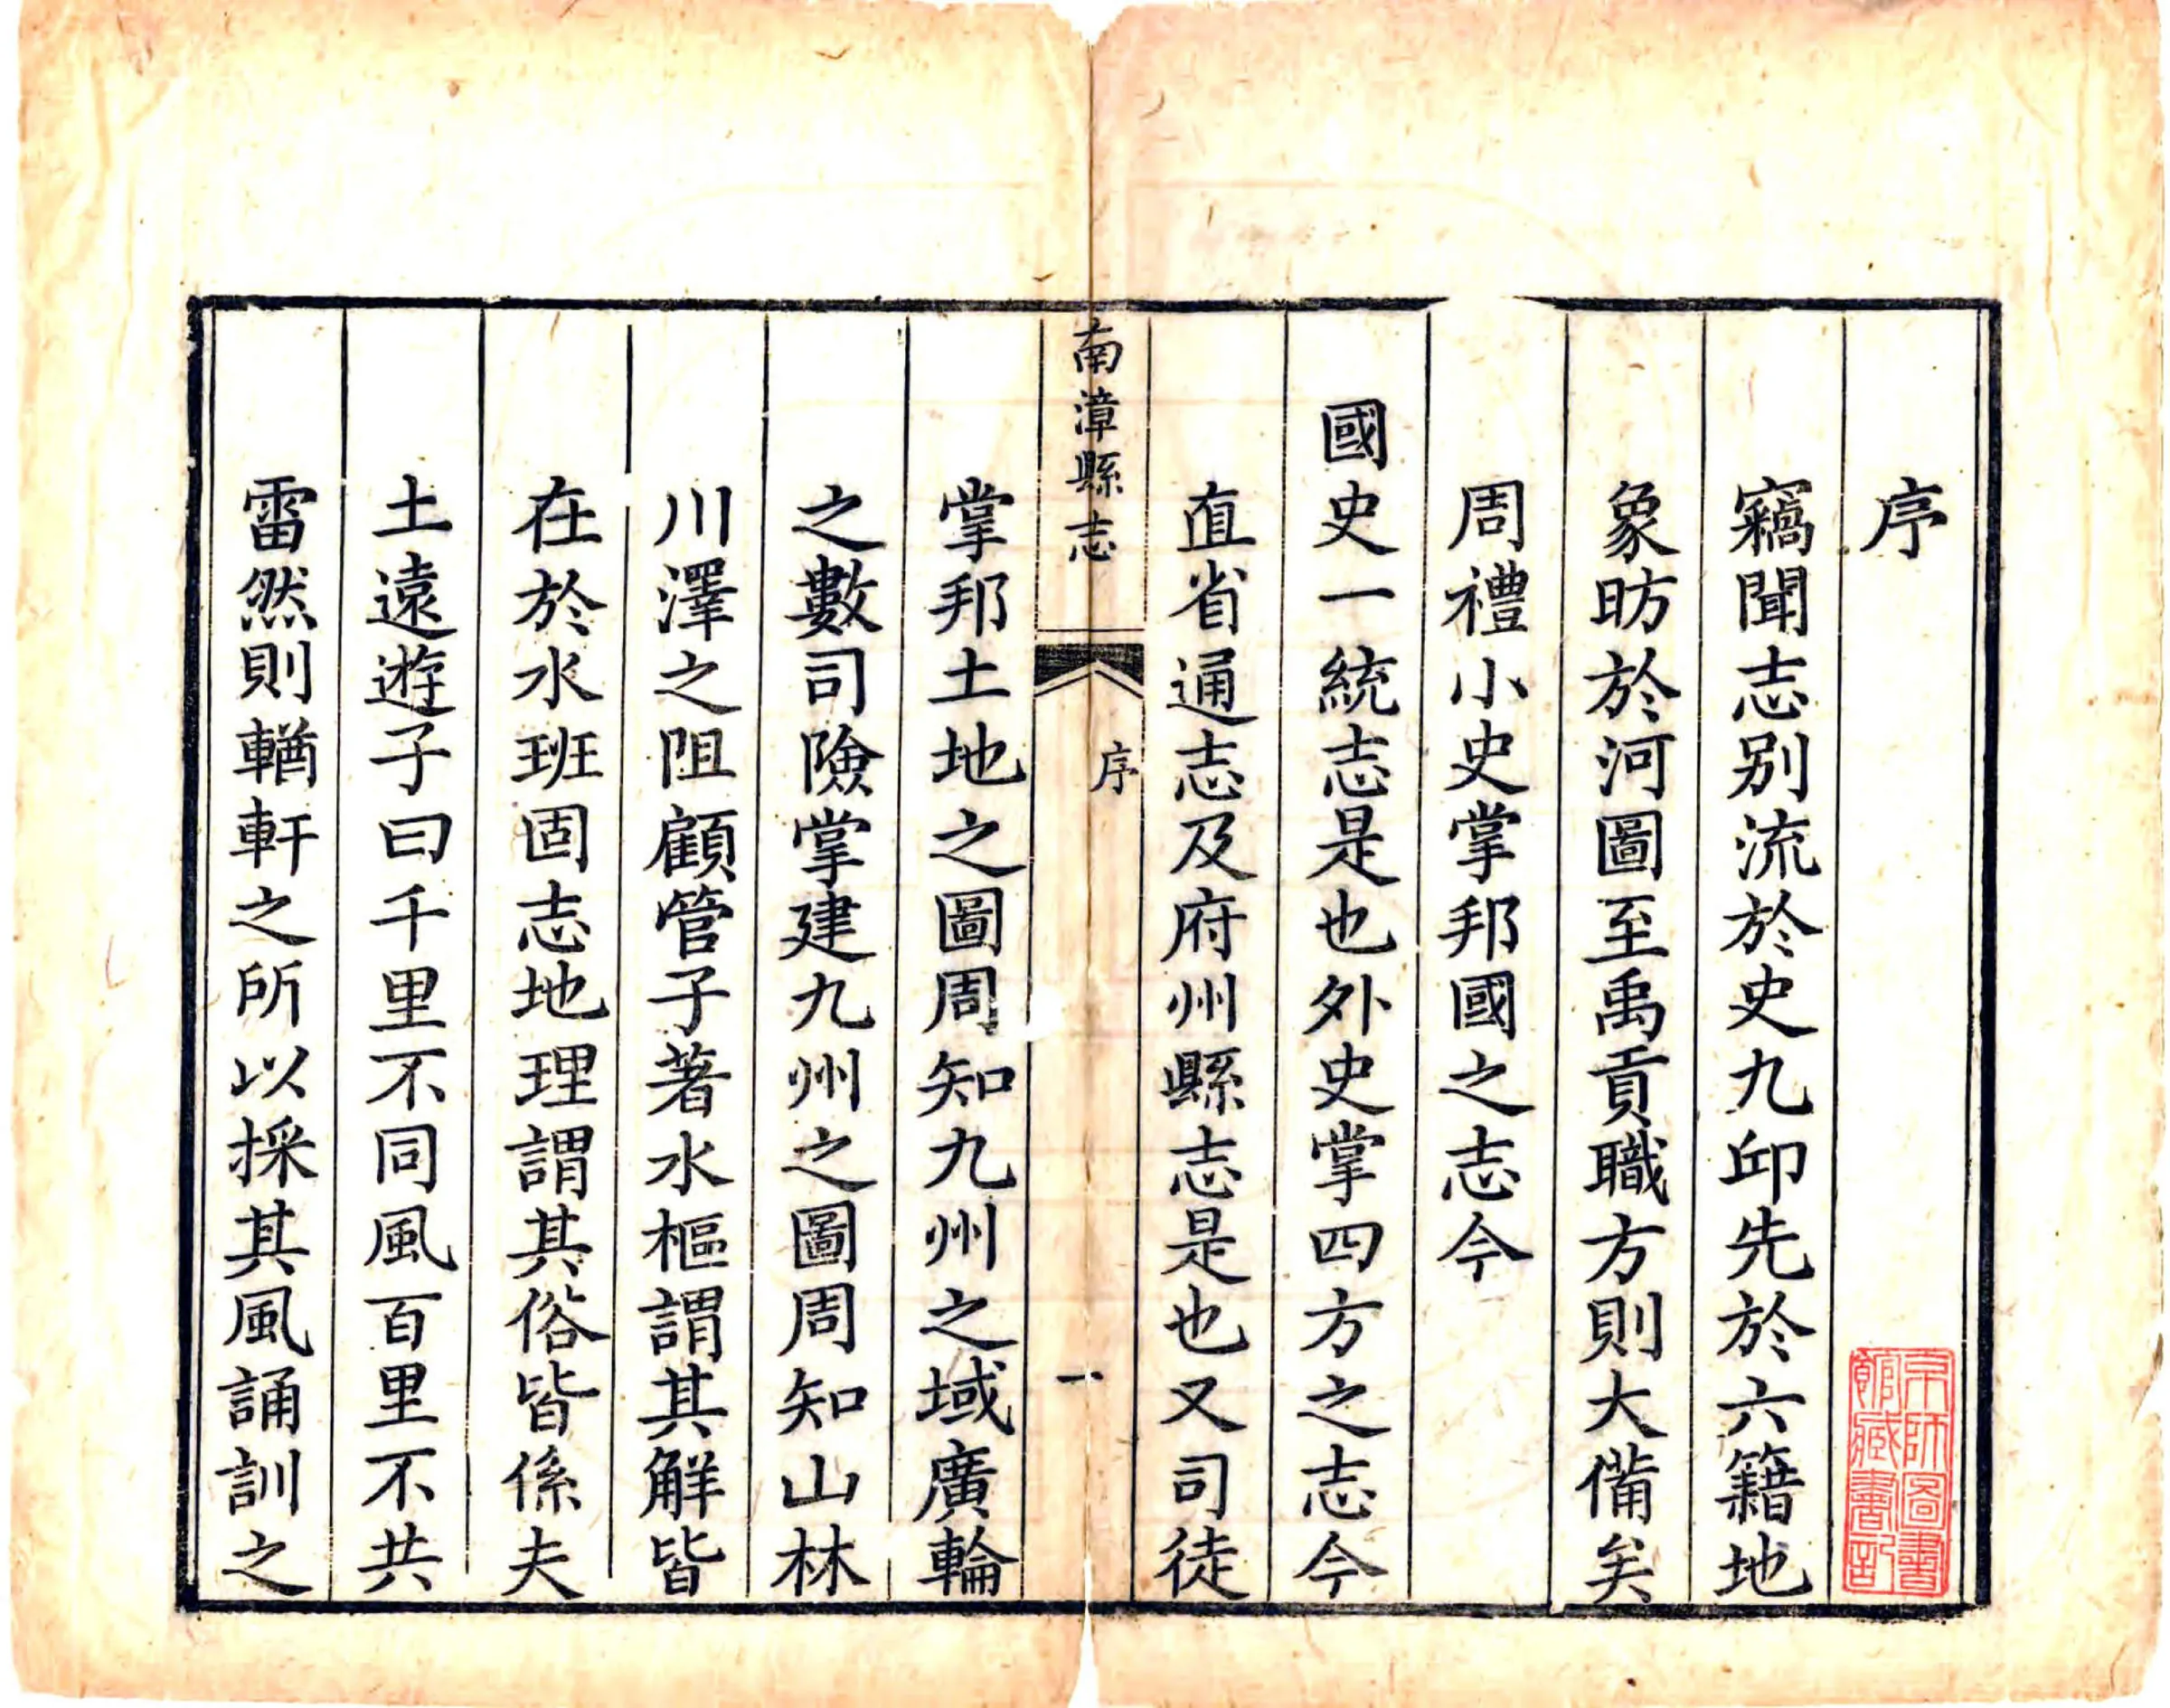 序
竊聞志别流於史九邱先於六籍地
象昉於河圖至禹貢職方則大備矣
周禮小史掌邦國之志今
國史一統志是也外史掌四方之志今
直省通志及府州縣志是也又司徒
南漳縣志
序
一
掌邦土地之圖周知九州之域廣輪
之數司險掌建九州之圖周知山林
川澤之阻顧管子著水樞謂其解皆
在於水班固志地理謂其俗皆係夫
土遠遊子曰千里不同風百里不共
雷然則輶軒之所以採其風誦訓之
京師圖書
館藏書記